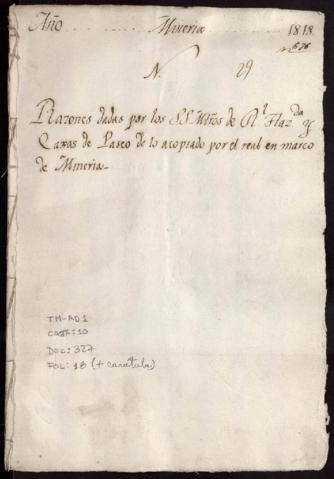 Año Mineria 1818
N. 29
Razones dadas por los SS. Mtros de Rl Haz.da y
Caxas de Pasco de lo acopiado por el real en marco
de Mineria
TM-AD1
Caja: 10
Doc: 327
Fol: 18 (+ caratula)